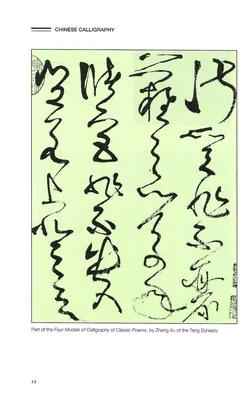 CHINESE CALLIGRAPHY
淑質非不麗
難之以万年
儲宮非不貴
豈若上登天
Part of the Four Models of Calligraphy of Classic Poems, by Zhang Xu of the Tang Dynasty.
12